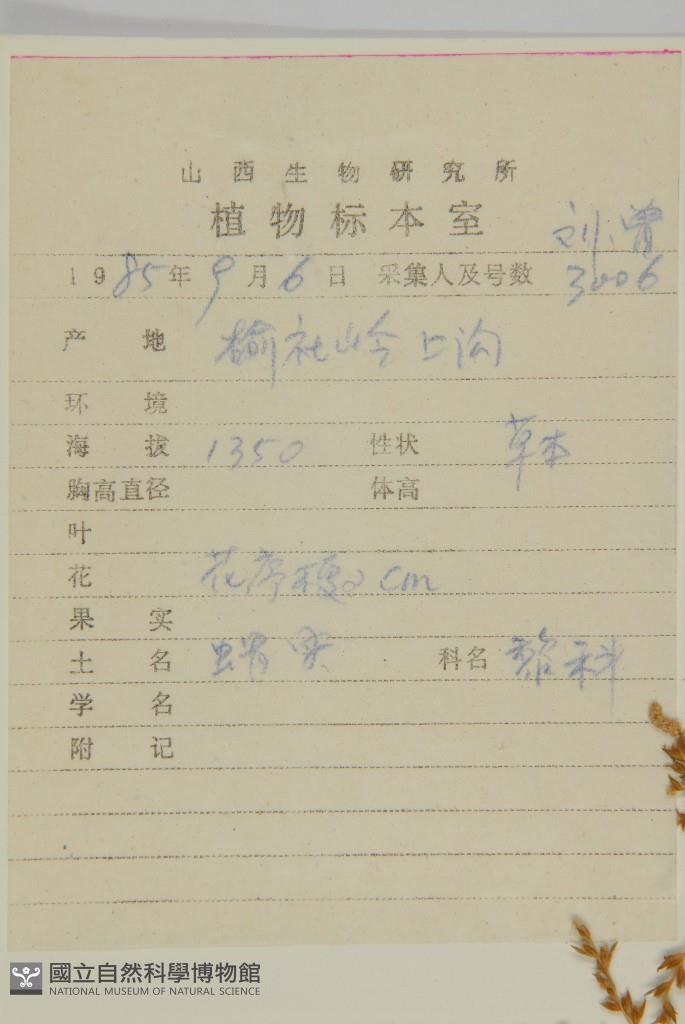 山西生物研究所
植物标本室
刘、曾
1985年9月6日 采集人及号数 3006
产地 榆社岭上沟
环境
海拔 1350 性状 草本
胸高直径 体高
叶
花 花序穗 cm
果实
土名 实 科名 藜科
学名
附记
國立自然科學博物館
NATIONAL MUSEUM OF NATURAL SCIENCE